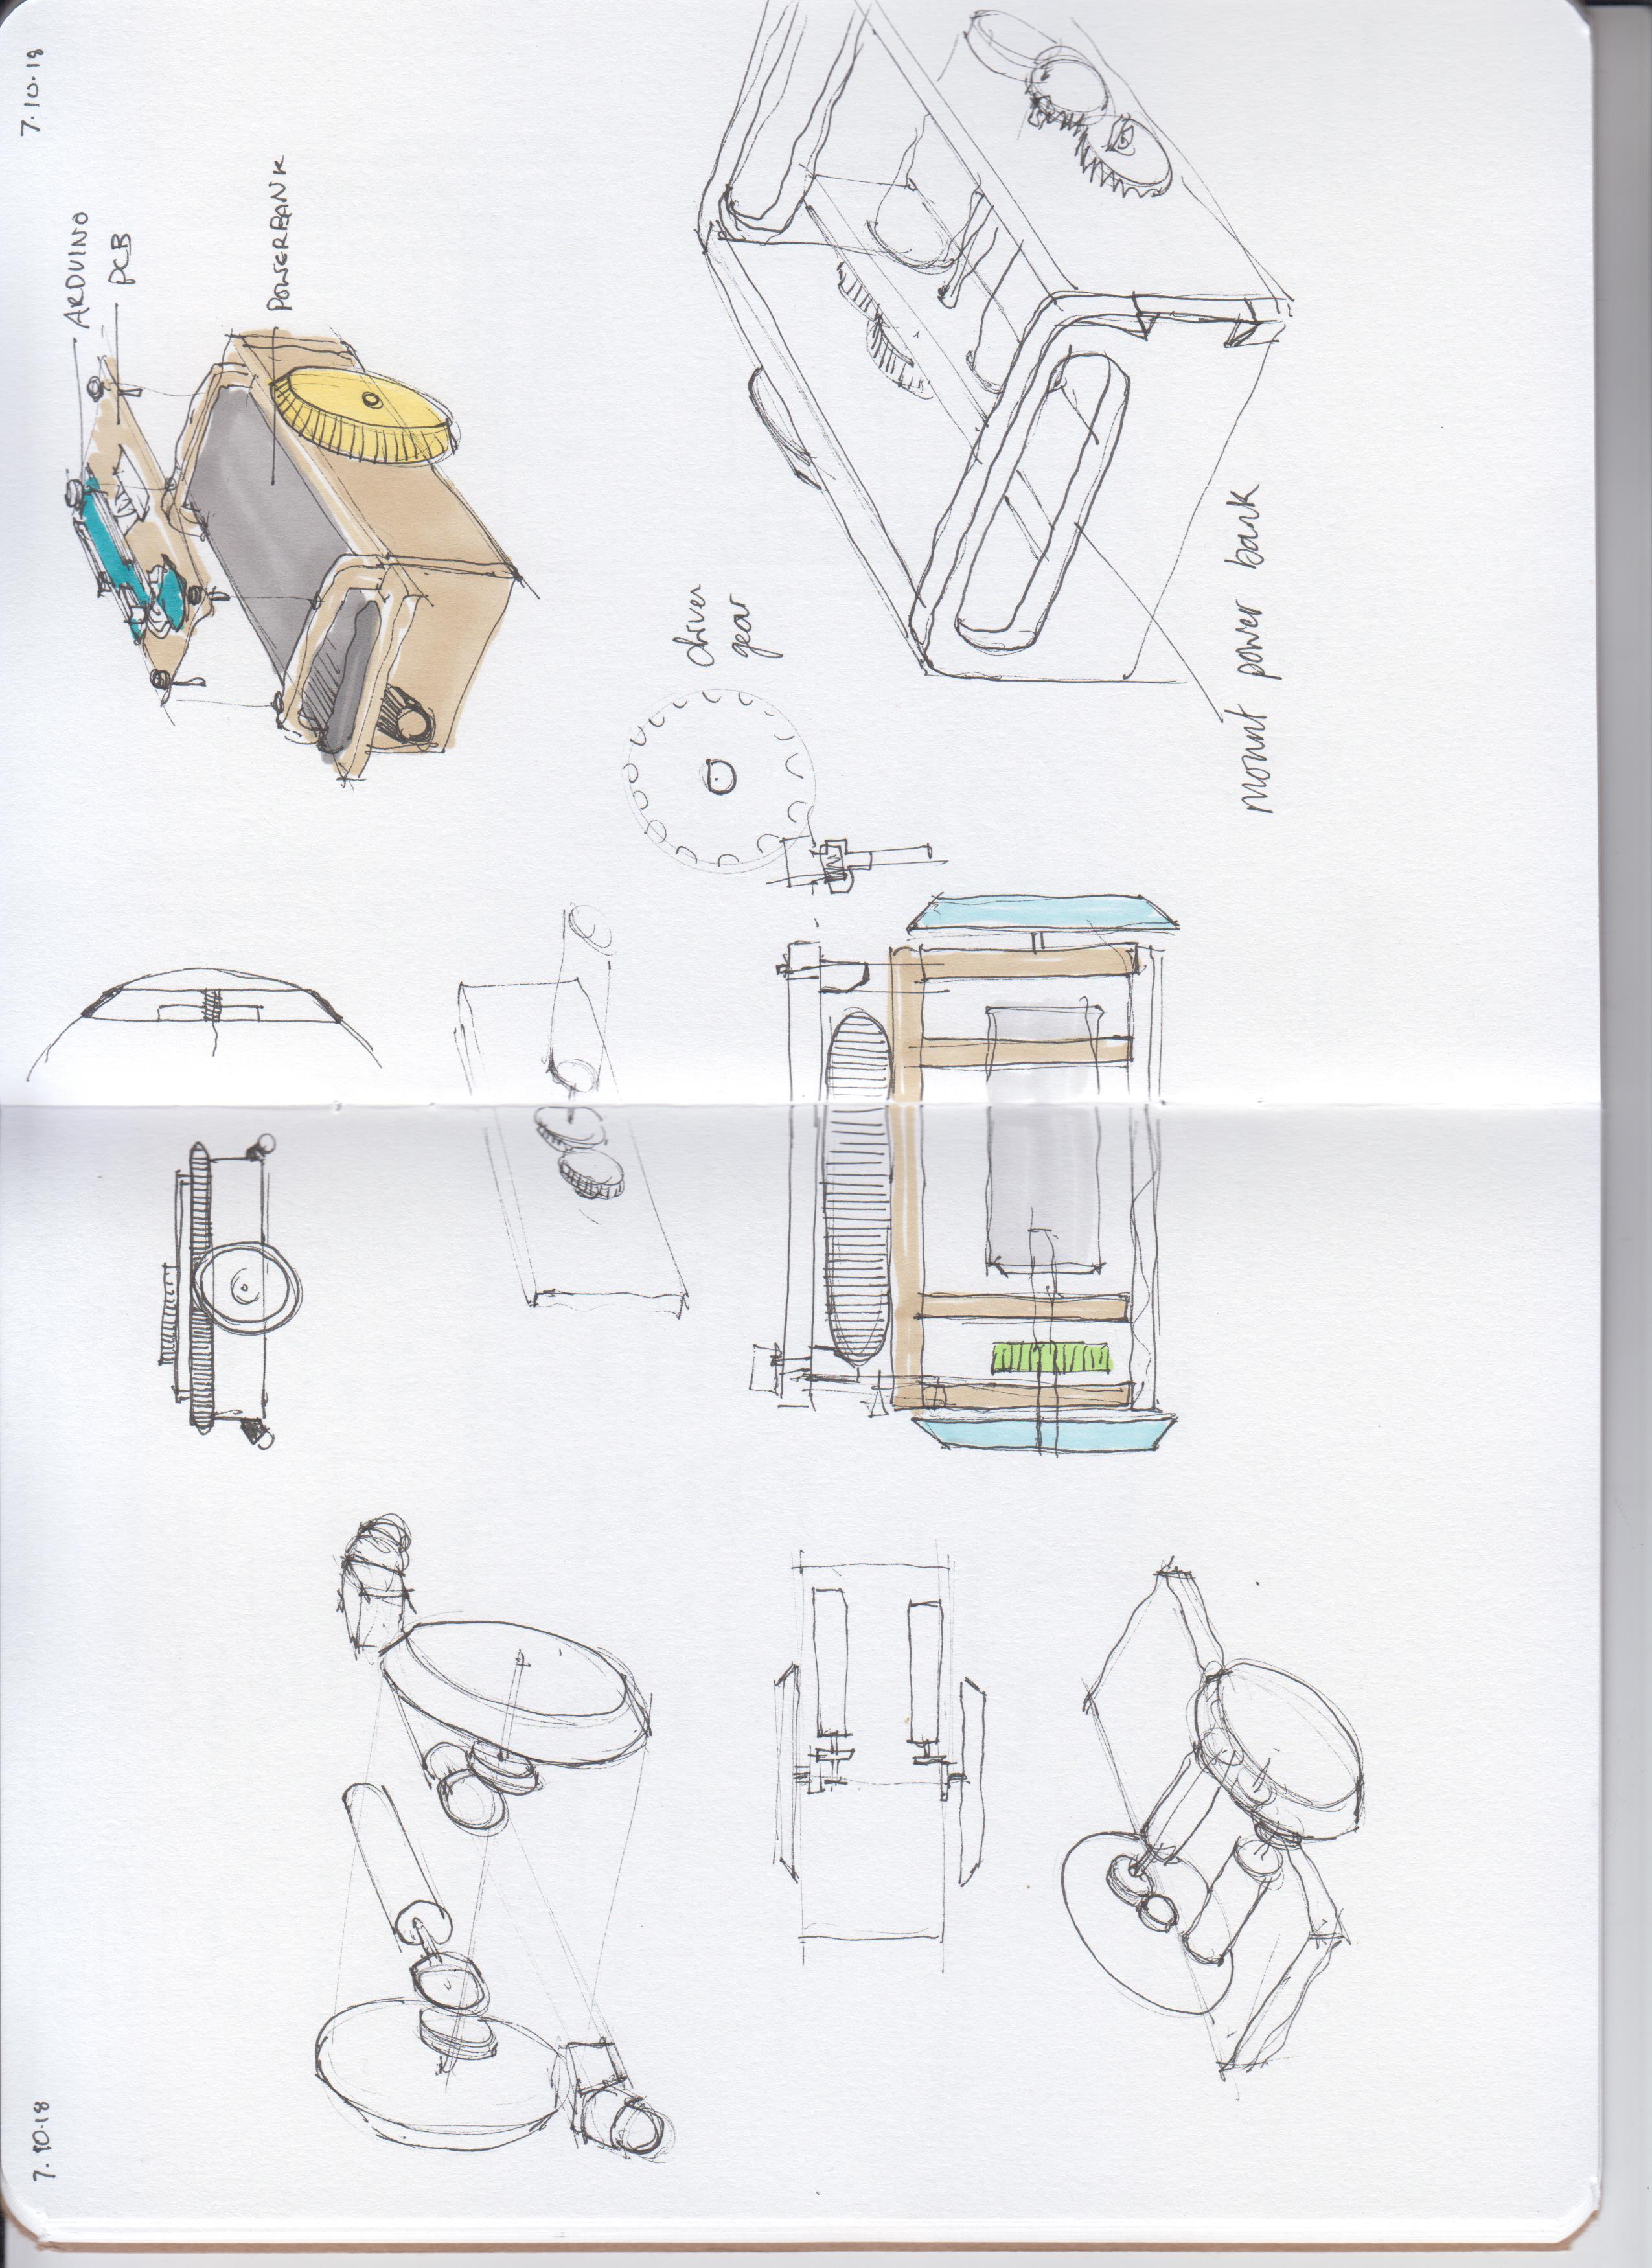 7.10.18
7.10.18
ARDUINO
PCB
POWERBANK
driver
gear
mount power bank